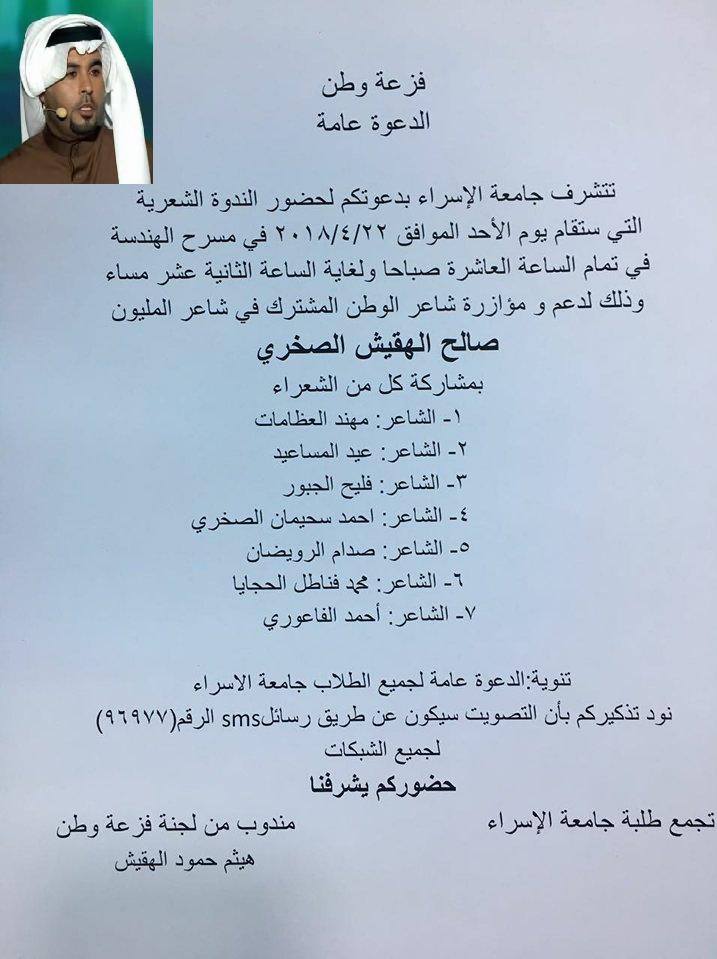 فزعة وطن
الدعوة عامة
تتشرف جامعة الإسراء بدعوتكم لحضور الندوة الشعرية
التي ستقام يوم الأحد الموافق ٢٠١٨/٤/٢٢ في مسرح الهندسة
في تمام الساعة العاشرة صباحا ولغاية الساعة الثانية عشر مساء
وذلك لدعم و مؤازرة شاعر الوطن المشترك في شاعر المليون
صالح الهقيش الصخري
بمشاركة كل من الشعراء
١- الشاعر: مهند العظامات
٢- الشاعر: عيد المساعيد
٣- الشاعر: فليح الجبور
٤- الشاعر: احمد سحيمان الصخري
٥- الشاعر: صدام الرويضان
٦- الشاعر: محمد فناطل الحجايا
٧- الشاعر: أحمد الفاعوري
تنوية:الدعوة عامة لجميع الطلاب جامعة الاسراء
نود تذكيركم بأن التصويت سيكون عن طريق رسائلsms الرقم(٩٦٩٧٧)
لجميع الشبكات
حضوركم يشرفنا
تجمع طلبة جامعة الإسراء مندوب من لجنة فزعة وطن
هيثم حمود الهقيش